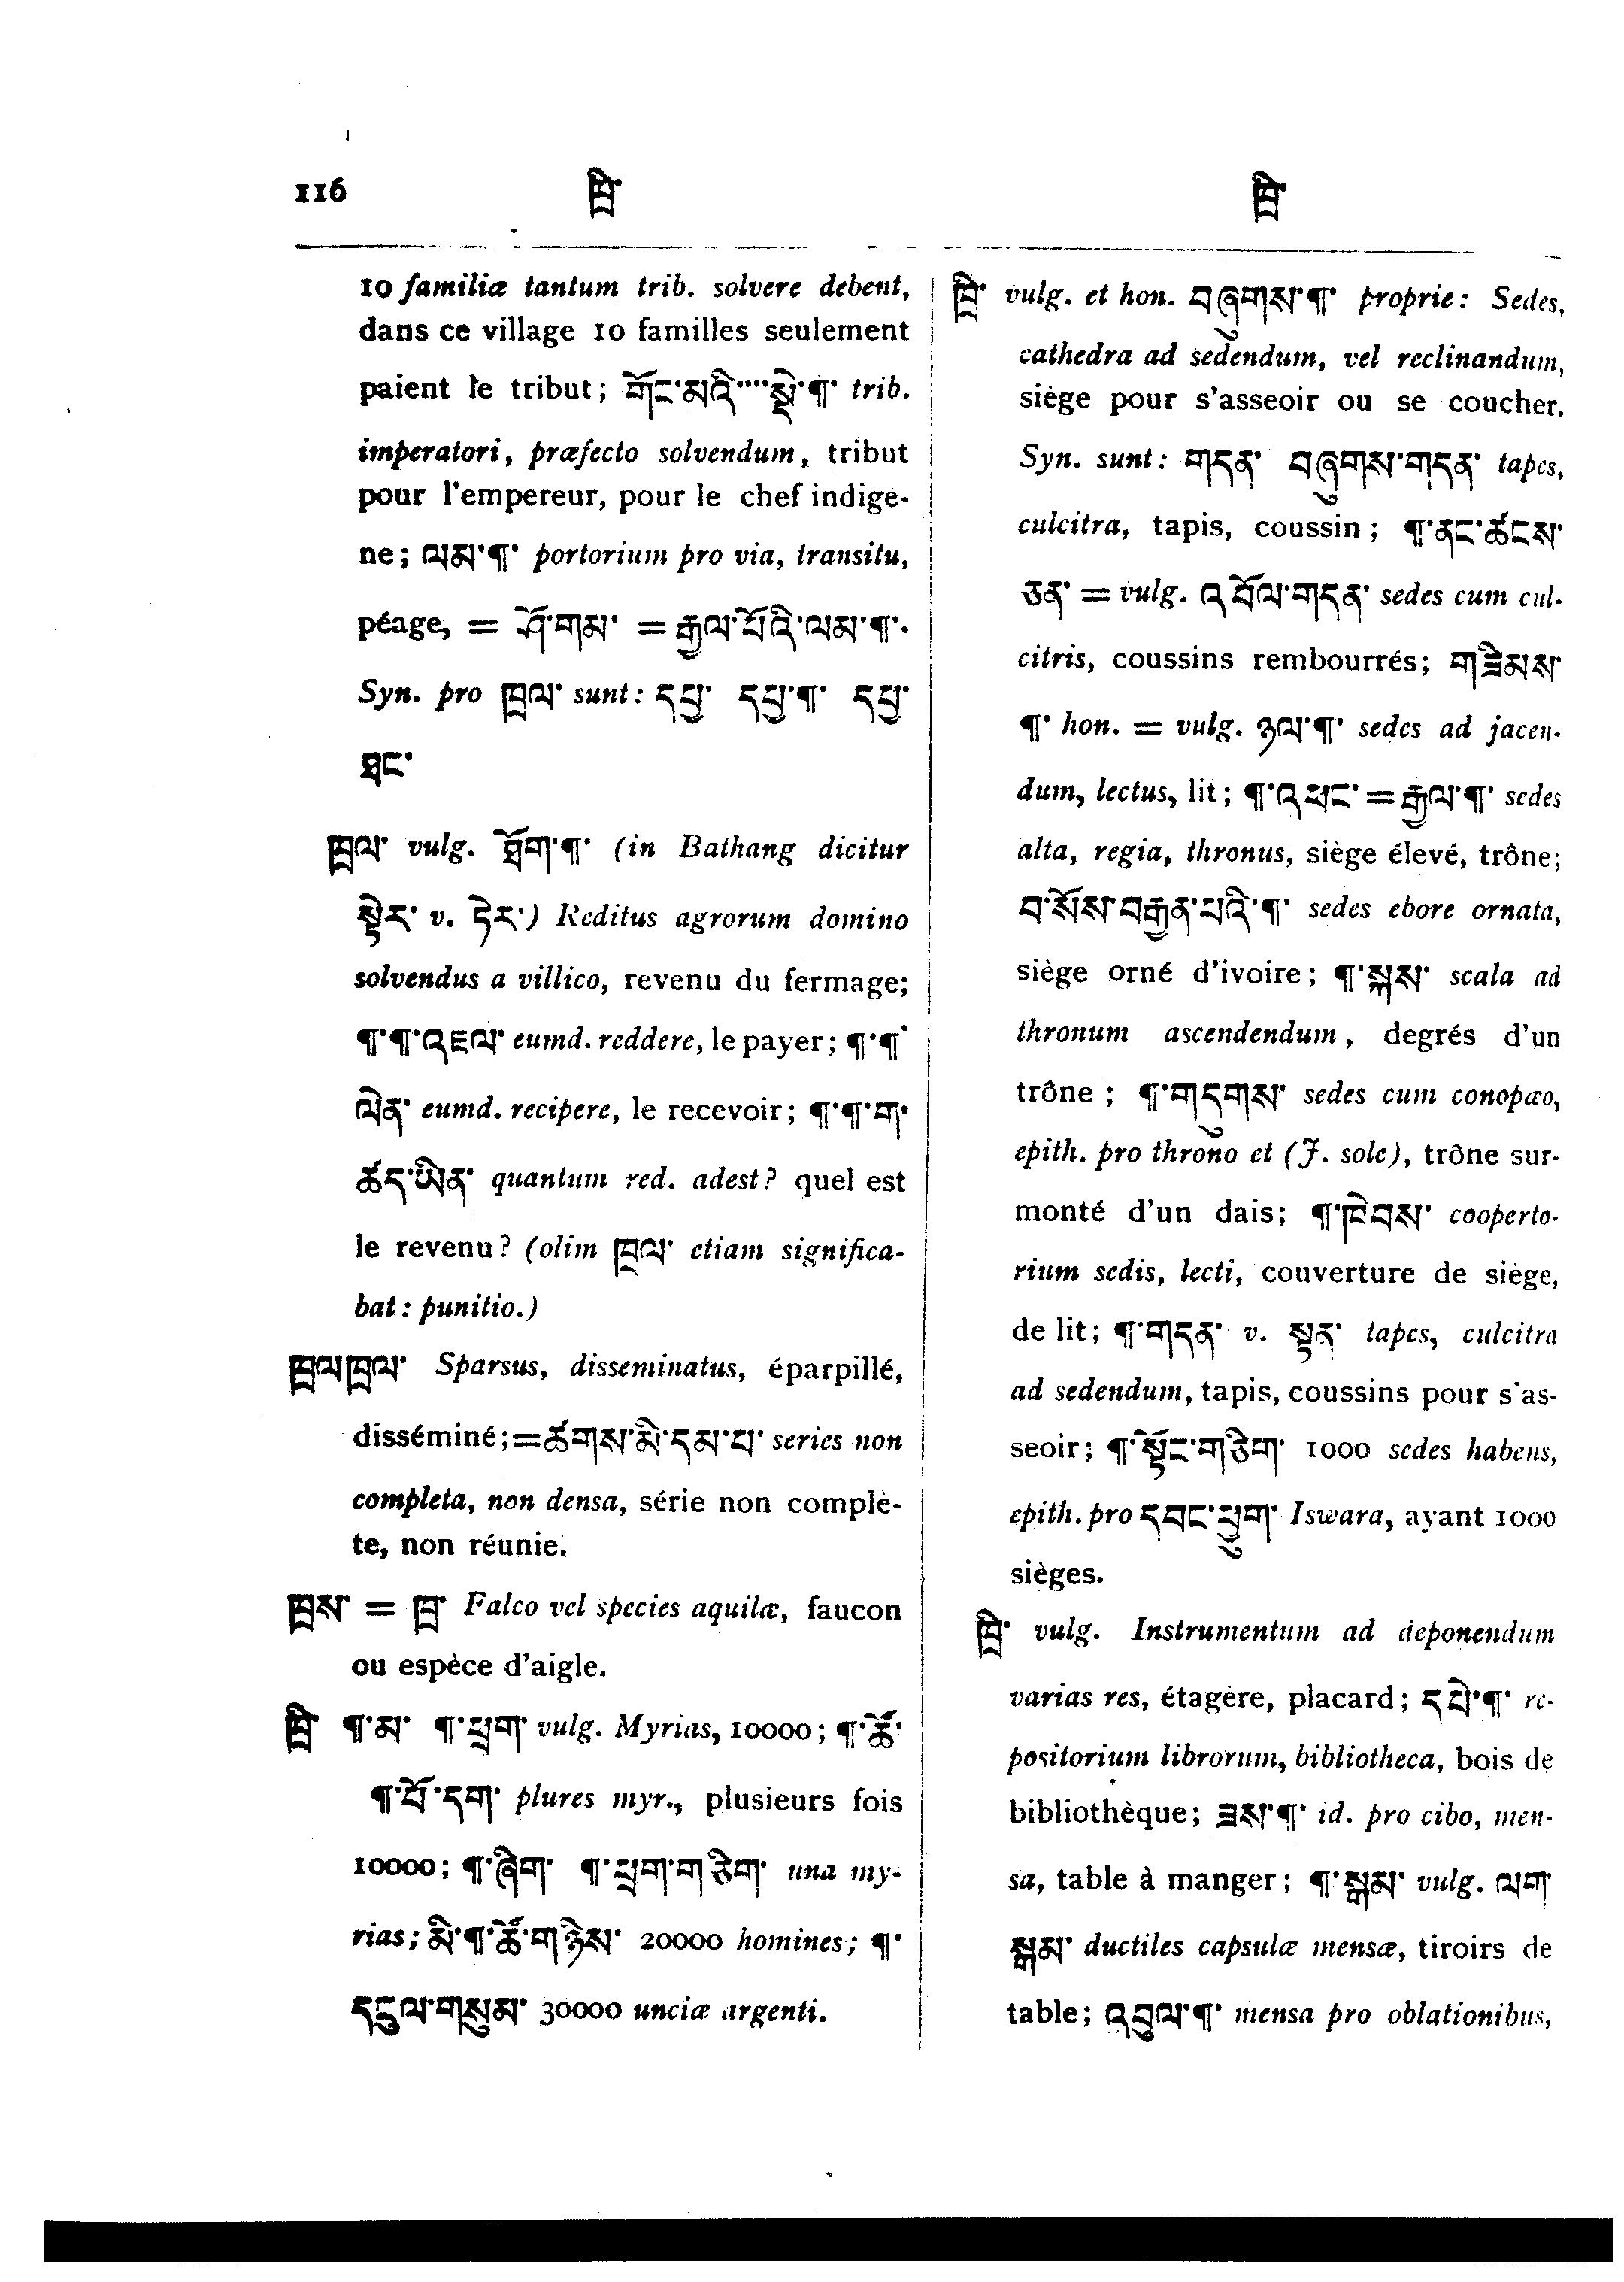 116
ཁྲི་
ཁྲི་
10 familiæ tantum trib. solvere debent,
dans ce village 10 familles seulement
paient le tribut; གོང་མའི་་་་སྡེ་¶་ trib.
imperatori, præfecto solvendum, tribut
pour l'empereur, pour le chef indigè-
ne; ལམ་¶་ portorium pro via, transitu,
péage, = ཤོ་གམ་ = རྒྱལ་པོའི་ལམ་¶་.
Syn. pro ཁྲལ་ sunt: དཔྱ་ དཔྱ་¶་ དཔྱ་
ཐང་
ཁྲལ་ vulg. ཐོག་¶་ (in Bathang dicitur
སྟེར་ v. ཏེར་) Reditus agrorum domino
solvendus a villico, revenu du fermage;
¶་¶་འཇལ་ eumd. reddere, le payer; ¶་¶་
ལེན་ eumd. recipere, le recevoir; ¶་¶་ག་
ཚད་ཡིན་ quantum red. adest? quel est
le revenu? (olim ཁྲལ་ etiam significa-
bat: punitio.)
ཁྲལཁྲལ་ Sparsus, disseminatus, éparpillé,
disséminé;=ཚགས་མི་དམ་པ་ series non
completa, non densa, série non complè-
te, non réunie.
ཁྲས་ = ཁྲ་ Falco vel species aquilæ, faucon
ou espèce d'aigle.
ཁྲི་ ¶་མ་ ¶་ཕྲག་ vulg. Myrias, 10000; ¶་ཚོ་
¶་པོ་དག་ plures myr., plusieurs fois
10000; ¶་ཞིག་ ¶་ཕྲག་གཅིག་ una my-
rias; མི་¶་ཚོ་གཉིས་ 20000 homines; ¶་
དངུལ་གསུམ་ 30000 unciæ argenti.
ཁྲི་ vulg. et hon. བཞུགས་¶་ proprie: Sedes,
cathedra ad sedendum, vel reclinandum,
siège pour s'asseoir ou se coucher.
Syn. sunt: གདན་ བཞུགས་གདན་ tapes,
culcitra, tapis, coussin; ¶་ནང་ཚངས་
ཅན་ = vulg. འབོལ་གདན་ sedes cum cul-
citris, coussins rembourrés; གཟིམས་
¶་ hon. = vulg. ཉལ་¶་ sedes ad jacen-
dum, lectus, lit; ¶་འཕང་ = རྒྱལ་¶་ sedes
alta, regia, thronus, siège élevé, trône;
བ་སོས་བརྒྱན་པའི་¶་ sedes ebore ornata,
siège orné d'ivoire; ¶་སྐས་ scala ad
thronum ascendendum, degrés d'un
trône; ¶་གདུགས་ sedes cum conopæo,
epith. pro throno et (J. sole), trône sur-
monté d'un dais; ¶་ཁེབས་ cooperto-
rium sedis, lecti, couverture de siège,
de lit; ¶་གདན་ v. སྟན་ tapes, culcitra
ad sedendum, tapis, coussins pour s'as-
seoir; ¶་སྟོང་གཅིག་ 1000 sedes habens,
epith. pro དབང་ཕྱུག་ Iswara, ayant 1000
sièges.
ཁྲི་ vulg. Instrumentum ad deponendum
varias res, étagère, placard; དཔེ་¶་ re-
positorium librorum, bibliotheca, bois de
bibliothèque; ཟས་¶་ id. pro cibo, men-
sa, table à manger; ¶་སྒམ་ vulg. ལག་
སྒམ་ ductiles capsulæ mensæ, tiroirs de
table; འབུལ་¶་ mensa pro oblationibus,